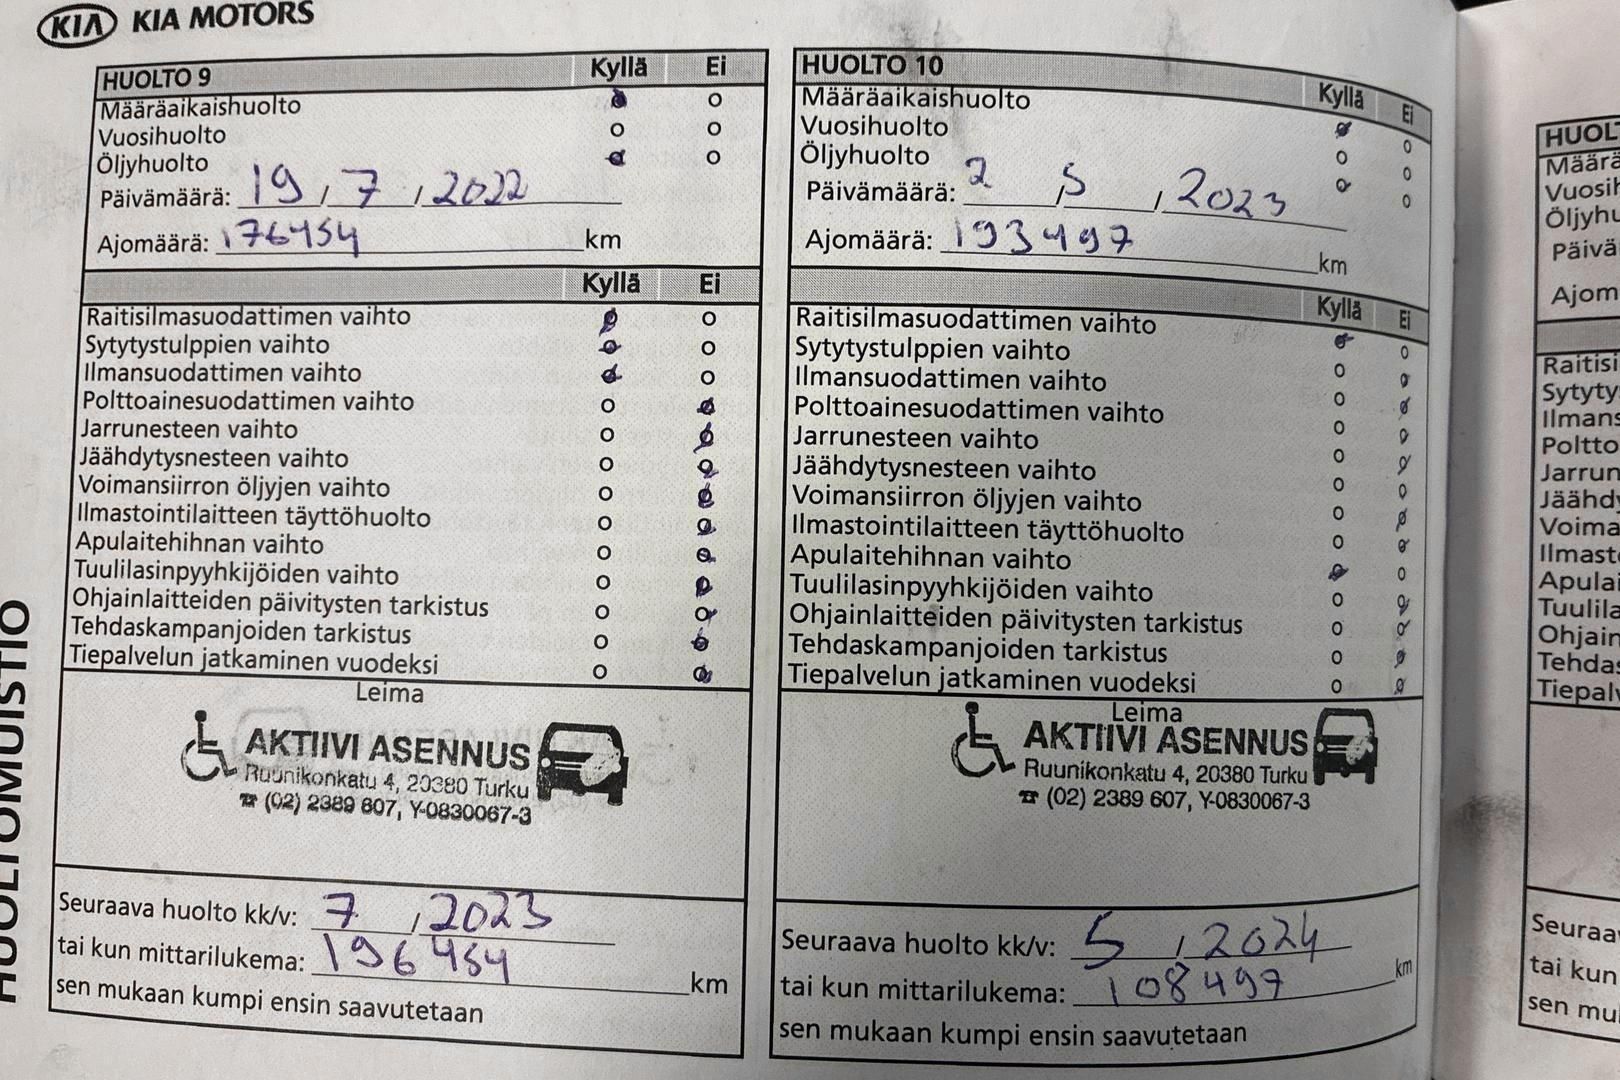 KIA KIA MOTORS
HUOLTO 9 Kyllä Ei
Määräaikaishuolto
Vuosihuolto
Öljyhuolto
Päivämäärä: 19 / 7 / 2022
Ajomäärä: 176454 km
Kyllä Ei
Raitisilmasuodattimen vaihto
Sytytystulppien vaihto
Ilmansuodattimen vaihto
Polttoainesuodattimen vaihto
Jarrunesteen vaihto
Jäähdytysnesteen vaihto
Voimansiirron öljyjen vaihto
Ilmastointilaitteen täyttöhuolto
Apulaitehihnan vaihto
Tuulilasinpyyhkijöiden vaihto
Ohjainlaitteiden päivitysten tarkistus
Tehdaskampanjoiden tarkistus
Tiepalvelun jatkaminen vuodeksi
Leima
AKTIIVI ASENNUS
Ruunikonkatu 4, 20380 Turku
☎ (02) 2389 607, Y-0830067-3
Seuraava huolto kk/v: 7 / 2023
tai kun mittarilukema: 196454 km
sen mukaan kumpi ensin saavutetaan
HUOLTO 10 Kyllä Ei
Määräaikaishuolto
Vuosihuolto
Öljyhuolto
Päivämäärä: 2 / 5 / 2023
Ajomäärä: 193497 km
Kyllä Ei
Raitisilmasuodattimen vaihto
Sytytystulppien vaihto
Ilmansuodattimen vaihto
Polttoainesuodattimen vaihto
Jarrunesteen vaihto
Jäähdytysnesteen vaihto
Voimansiirron öljyjen vaihto
Ilmastointilaitteen täyttöhuolto
Apulaitehihnan vaihto
Tuulilasinpyyhkijöiden vaihto
Ohjainlaitteiden päivitysten tarkistus
Tehdaskampanjoiden tarkistus
Tiepalvelun jatkaminen vuodeksi
Leima
AKTIIVI ASENNUS
Ruunikonkatu 4, 20380 Turku
☎ (02) 2389 607, Y-0830067-3
Seuraava huolto kk/v: 5 / 2024
tai kun mittarilukema: 108497 km
sen mukaan kumpi ensin saavutetaan
HUOLTOMUISTIO
Seuraa
tai kun
sen mu